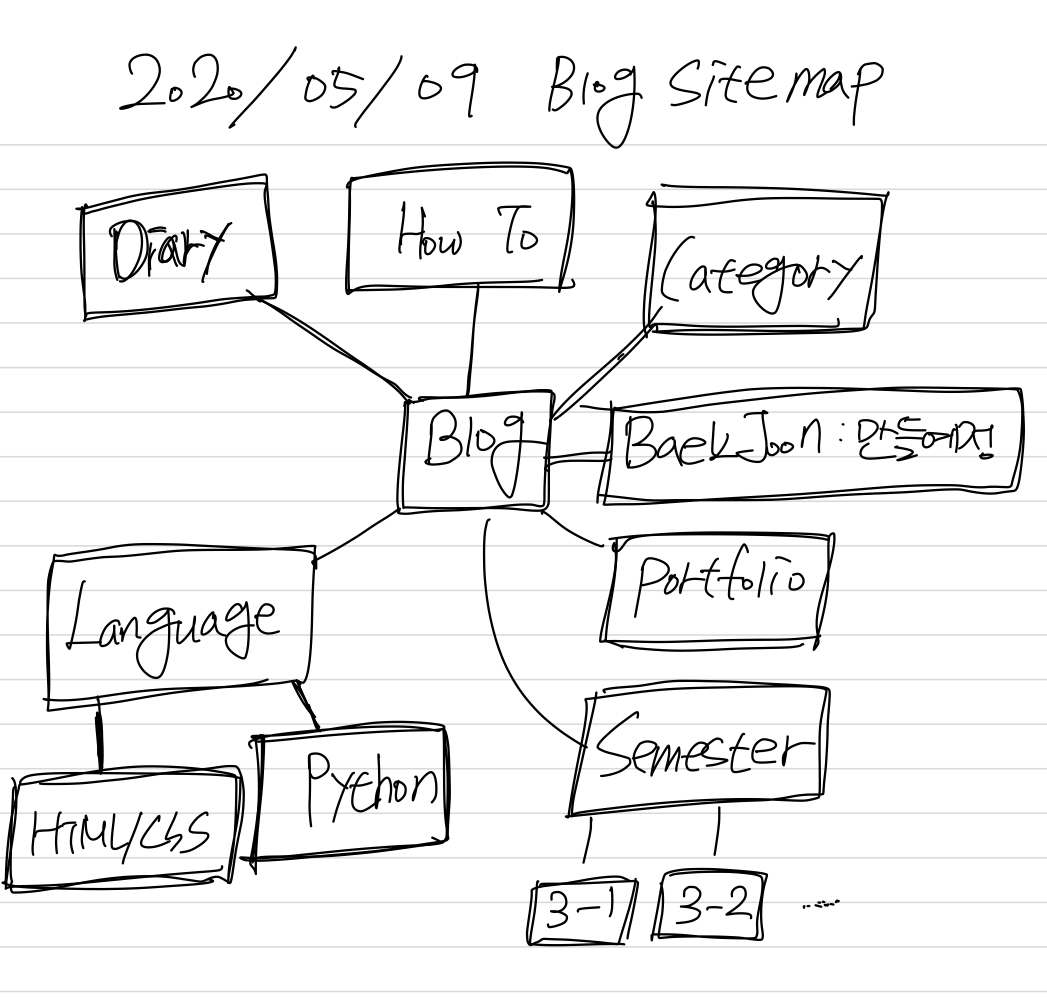 2020/05/09 Blog Sitemap
Diary
How To
Category
Blog
BaekJoon : 만들예정!
Portfolio
Language
Semester
HTML/CSS
Python
3-1
3-2
.....